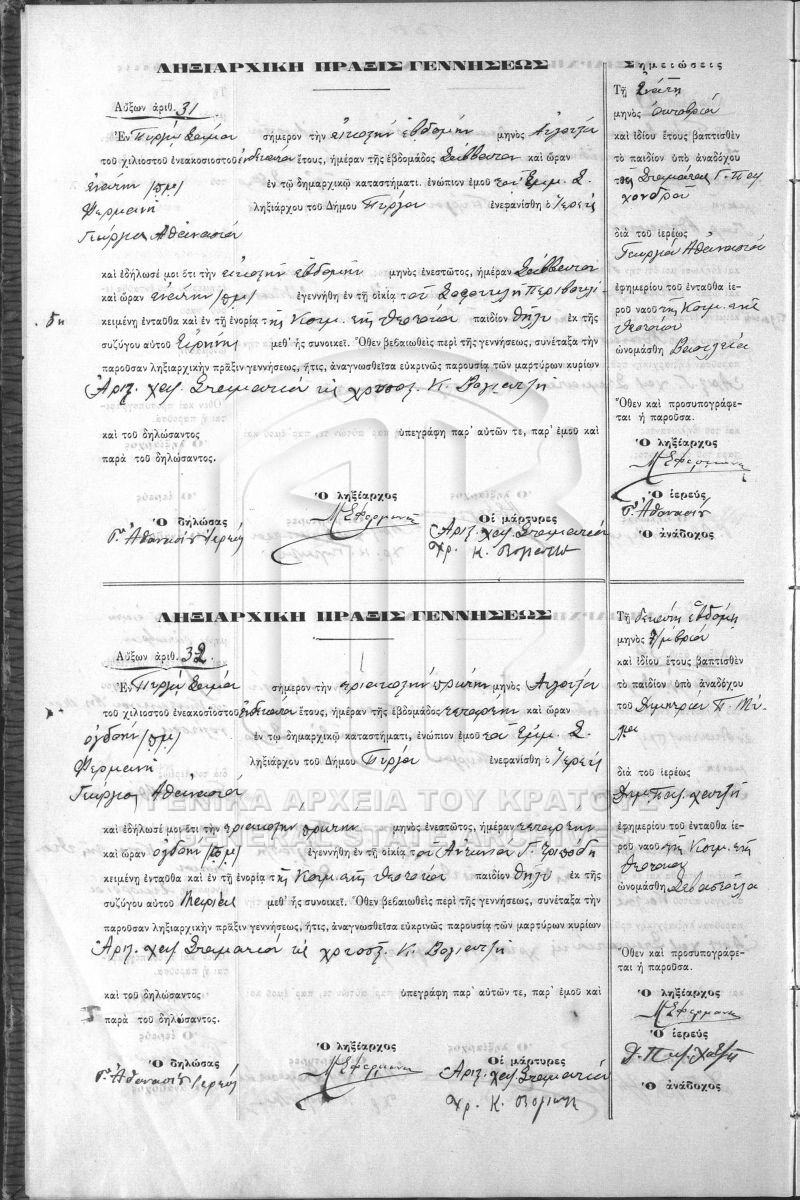 ΛΗΞΙΑΡΧΙΚΗ ΠΡΑΞΙΣ ΓΕΝΝΗΣΕΩΣ
Αὔξων ἀριθ. 31
Ἐν Πύργῳ Σάμου σήμερον τὴν εἰκοστὴν ἑβδόμην μηνὸς Αὐγούστου
τοῦ χιλιοστοῦ ἐνεακοσιοστοῦ ἑνδεκάτου ἔτους, ἡμέραν τῆς ἑβδομάδος Σάββατον καὶ ὥραν
ἐνάτην (πμ) ἐν τῷ δημαρχικῷ καταστήματι, ἐνώπιον ἐμοῦ τοῦ Ἐμμ. Σ.
Φερμανῆ ληξιάρχου τοῦ Δήμου Πύργου ἐνεφανίσθη ὁ Ἱερεὺς
Γεώργιος Ἀθανασίου
καὶ ἐδήλωσέ μοι ὅτι τὴν εἰκοστὴν ἑβδόμην μηνὸς ἐνεστῶτος, ἡμέραν Σάββατον
καὶ ὥραν ἐνάτην (πμ) ἐγεννήθη ἐν τῇ οἰκίᾳ τοῦ
κειμένῃ ἐνταῦθα καὶ ἐν τῇ ἐνορίᾳ τῆς Κοιμ. τῆς Θεοτόκου παιδίον θῆλυ ἐκ τῆς
συζύγου αὐτοῦ Εἰρήνης μεθ' ἧς συνοικεῖ. Ὅθεν βεβαιωθεὶς περὶ τῆς γεννήσεως, συνέταξα τὴν
παροῦσαν ληξιαρχικὴν πρᾶξιν γεννήσεως, ἥτις, ἀναγνωσθεῖσα εὐκρινῶς παρουσίᾳ τῶν μαρτύρων κυρίων
Ἀριστ. χατ. Σταματίου κ. Χρυσοστ. Κ. Βογιατζῆ
καὶ τοῦ δηλώσαντος ὑπεγράφη παρ' αὐτῶν τε, παρ' ἐμοῦ καὶ
παρὰ τοῦ δηλώσαντος.
Ὁ ληξίαρχος
Ὁ δηλώσας Οἱ μάρτυρες
Γ. Ἀθανασίου Ἱερεὺς
Χρ. Κ. Βογιατζῆς
Σημειώσεις
Τῇ ἐνάτῃ
μηνὸς Ὀκτωβρίου
καὶ ἰδίου ἔτους βαπτισθὲν
τὸ παιδίον ὑπὸ ἀναδόχου
διὰ τοῦ ἱερέως
Γεωργίου Ἀθανασίου
ἐφημερίου τοῦ ἐνταῦθα ἱε-
ροῦ ναοῦ τῆς Κοιμ. τῆς
Θεοτόκου
ὠνομάσθη Βασιλεία
Ὅθεν καὶ προσυπογράφε-
ται ἡ παροῦσα.
Ὁ ληξίαρχος
Ὁ ἱερεύς
Γ. Ἀθανασίου
Ὁ ἀνάδοχος
ΛΗΞΙΑΡΧΙΚΗ ΠΡΑΞΙΣ ΓΕΝΝΗΣΕΩΣ
Αὔξων ἀριθ. 32
Ἐν Πύργῳ Σάμου σήμερον τὴν τριακοστὴν πρώτην μηνὸς Αὐγούστου
τοῦ χιλιοστοῦ ἐνεακοσιοστοῦ ἑνδεκάτου ἔτους, ἡμέραν τῆς ἑβδομάδος τετάρτην καὶ ὥραν
ὀγδόην (πμ) ἐν τῷ δημαρχικῷ καταστήματι, ἐνώπιον ἐμοῦ τοῦ Ἐμμ. Σ.
Φερμανῆ ληξιάρχου τοῦ Δήμου Πύργου ἐνεφανίσθη ὁ Ἱερεὺς
Γεώργιος Ἀθανασίου
καὶ ἐδήλωσέ μοι ὅτι τὴν τριακοστὴν πρώτην μηνὸς ἐνεστῶτος, ἡμέραν τετάρτην
καὶ ὥραν ὀγδόην (πμ) ἐγεννήθη ἐν τῇ οἰκίᾳ τοῦ Ἀντωνίου Γ.
κειμένῃ ἐνταῦθα καὶ ἐν τῇ ἐνορίᾳ τῆς Κοιμ. τῆς Θεοτόκου παιδίον θῆλυ ἐκ τῆς
συζύγου αὐτοῦ Μαρίας μεθ' ἧς συνοικεῖ. Ὅθεν βεβαιωθεὶς περὶ τῆς γεννήσεως, συνέταξα τὴν
παροῦσαν ληξιαρχικὴν πρᾶξιν γεννήσεως, ἥτις, ἀναγνωσθεῖσα εὐκρινῶς παρουσίᾳ τῶν μαρτύρων κυρίων
Ἀριστ. χατ. Σταματίου κ. Χρυσοστ. Κ. Βογιατζῆ
καὶ τοῦ δηλώσαντος ὑπεγράφη παρ' αὐτῶν τε, παρ' ἐμοῦ καὶ
παρὰ τοῦ δηλώσαντος.
Ὁ ληξίαρχος
Ὁ δηλώσας Οἱ μάρτυρες
Γ. Ἀθανασίου Ἱερεὺς
Χρ. Κ. Βογιατζῆς
Τῇ δεκάτῃ ἑβδόμῃ
μηνὸς
καὶ ἰδίου ἔτους βαπτισθὲν
τὸ παιδίον ὑπὸ ἀναδόχου
τοῦ Δημητρίου Π.
διὰ τοῦ ἱερέως
ἐφημερίου τοῦ ἐνταῦθα ἱε-
ροῦ ναοῦ τῆς Κοιμ. τῆς
Θεοτόκου
ὠνομάσθη Σεβαστούλα
Ὅθεν καὶ προσυπογράφε-
ται ἡ παροῦσα.
Ὁ ληξίαρχος
Ὁ ἱερεύς
Ὁ ἀνάδοχος
ΓΕΝΙΚΑ ΑΡΧΕΙΑ ΤΟΥ ΚΡΑΤΟΥΣ